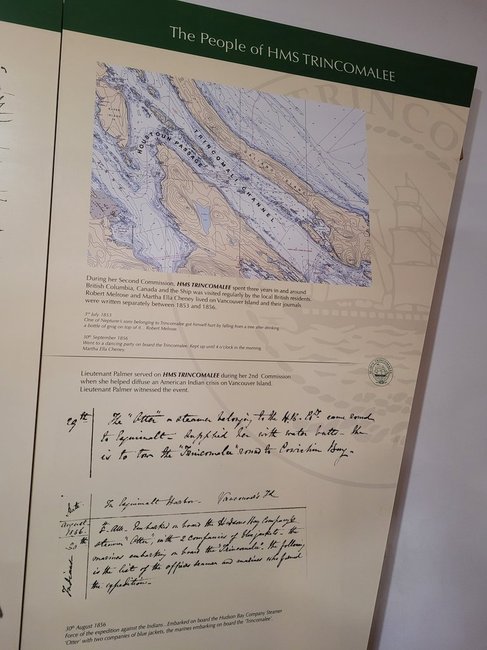 The People of HMS TRINCOMALEE
HOUSTOUN PASSAGE
TRINCOMALI CHANNEL
During her Second Commission, HMS TRINCOMALEE spent three years in and around
British Columbia, Canada and the Ship was visited regularly by the local British residents.
Robert Melrose and Martha Ella Cheney lived on Vancouver Island and their journals
were written separately between 1853 and 1856.
3rd July 1853
One of Neptune's sons belonging to Trincomalee got himself hurt by falling from a tree after drinking
a bottle of grog on top of it. . Robert Melrose
30th September 1856
Went to a dancing party on board the Trincomalee. Kept up until 4 o'clock in the morning
Martha Ella Cheney
Lieutenant Palmer served on HMS TRINCOMALEE during her 2nd Commission
when she helped diffuse an American Indian crisis on Vancouver Island.
Lieutenant Palmer witnessed the event.
29th The "Otter" a steamer belongg. to the H.B. Co. came round
to Esquimalt - Supplied her with water butts - She
is to tow the Trincomalee round to Cowichin Bay.
In Esquimalt Harbor - Vancouver's Id
August 1856 30th
Embarked on board the Hudsons Bay Company's
steamer "Otter" with 2 Companies of blue jackets - the
marines embarking on board the "Trincomalee". The following
is the list of the officers seamen and marines who formed
the expedition.
30th August 1856
Force of the expedition against the Indians . Embarked on board the Hudson Bay Company Steamer
'Otter' with two companies of blue jackets, the marines embarking on board the 'Trincomalee'.
TRINCO